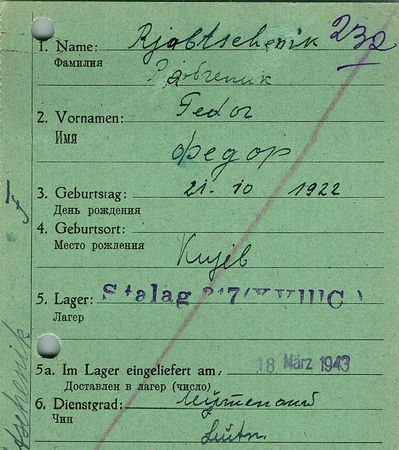 1. Name: Rjabtschenik 232
Фамилия
2. Vornamen: Fedor
Имя
Федор
3. Geburtstag: 21. 10 1922
День рождения
4. Geburtsort:
Место рождения
Kujeb
5. Lager: Stalag 317(XVIIIC)
Лагер
5a. Im Lager eingeliefert am, 18. März 1943
Доставлен в лагер (число)
6. Dienstgrad:
Чин
Leutn.